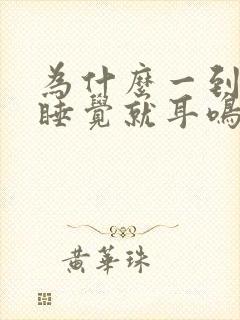 為什麼一到
睡覺就耳鳴
黃華珠